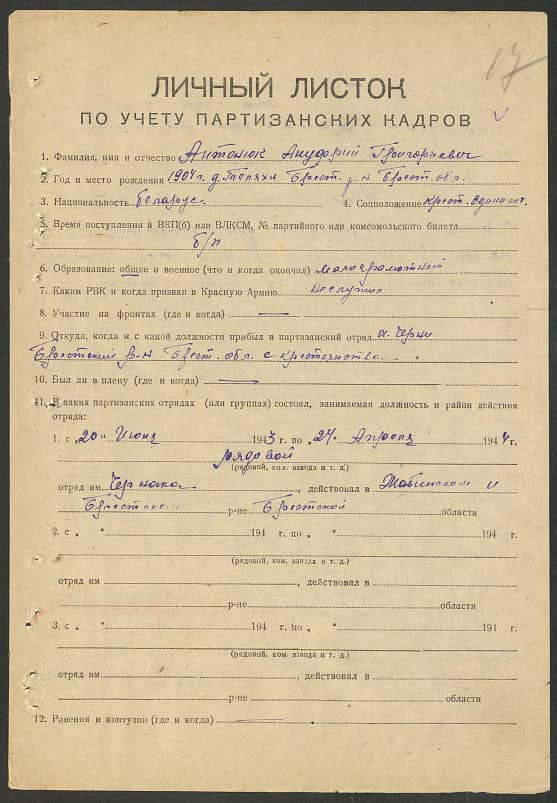 17
ЛИЧНЫЙ ЛИСТОК
ПО УЧЕТУ ПАРТИЗАНСКИХ КАДРОВ
1. Фамилия, имя и отчество Антонюк Григорьевич
2. Год и место рождения 1904 г. д. Брест. р-н Брест. обл.
3. Национальность белорус. 4. Соцположение крест. единолич.
5. Время поступления в ВКП(б) или ВЛКСМ, № партийного или комсомольского билета
б/п
6. Образование: общее и военное (что и когда окончил) малограмотный
7. Каким РВК и когда призван в Красную Армию не служил
8. Участие на фронтах (где и когда) —
9. Откуда, когда и с какой должности прибыл в партизанский отряд д. Черни
Брестский р-н Брест. обл. с крестьянства.
10. Был ли в плену (где и когда) —
11. В каких партизанских отрядах (или группах) состоял, занимаемая должность и район действия
отряда:
1. с „20“ Июня 1943 г. по „24“ Апреля 1944 г.
рядовой
(рядовой, ком. взвода и т. д.)
отряд им. Чернака, действовал в Жабинском и
Брестском р-не Брестской области
2. с „ “ 194 г. по „ “ 194 г.
(рядовой, ком. взвода и т. д.)
отряд им , действовал в
р-не области
3. с „ “ 194 г. по „ “ 194 г.
(рядовой, ком. взвода и т. д.)
отряд им. , действовал в
р-не области
12. Ранения и контузии (где и когда) —